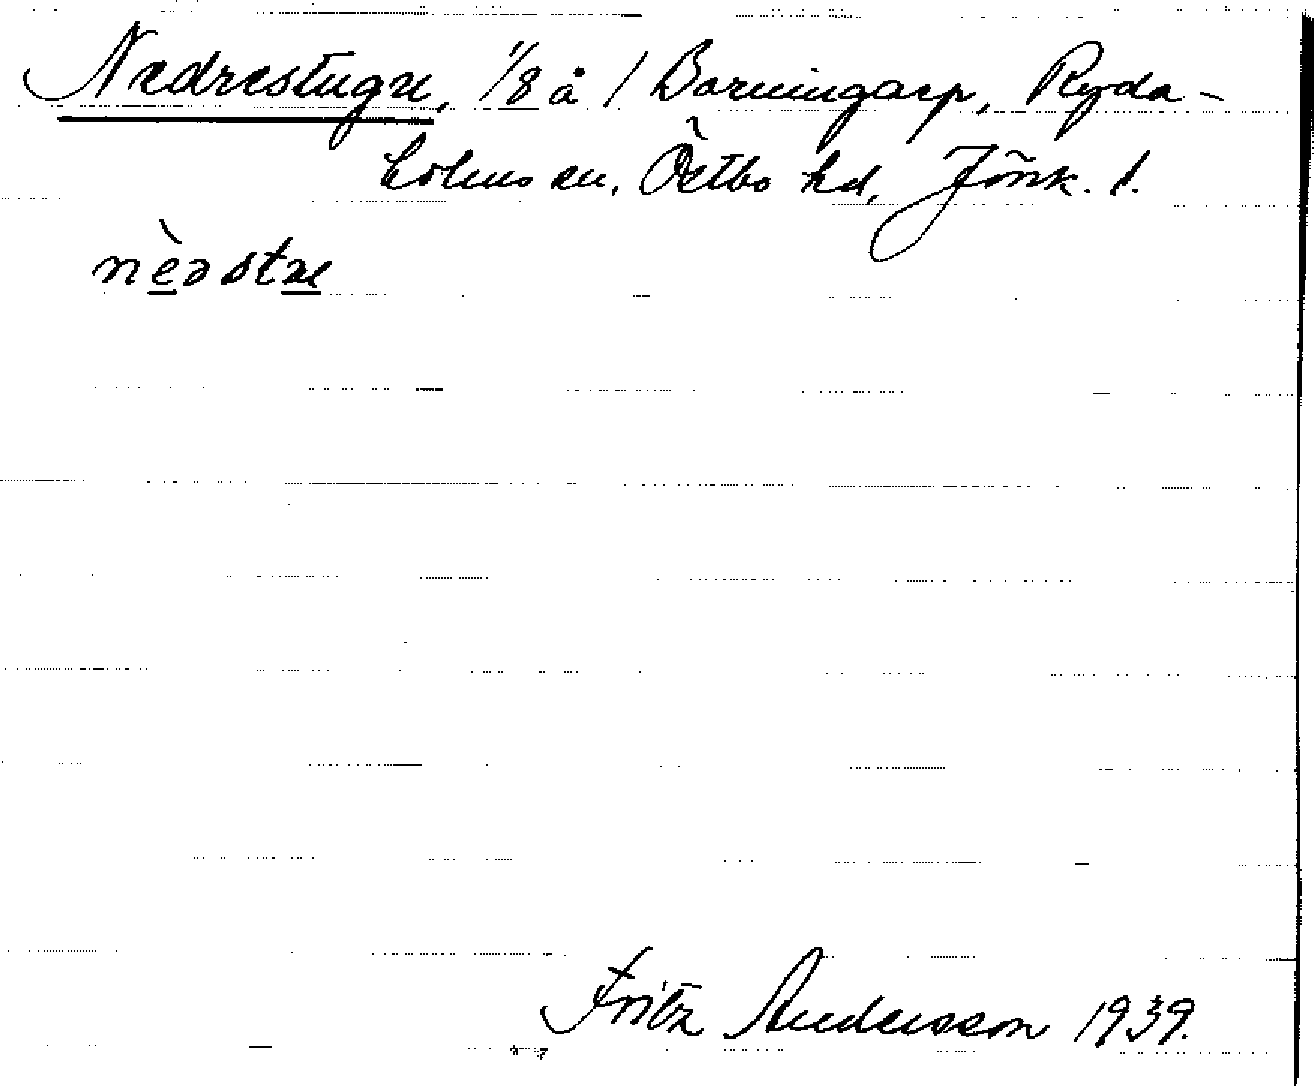 Nedrestugu, 1/8 å / Bormingarp, Ryda-
holms sn, Östbo hd, Jönk. l.
Fritz Andersson 1939.